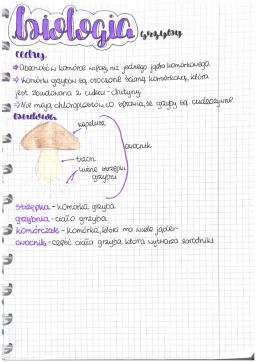 biologia grzyby
cechy
→ Obecność w komórce więcej niż jednego jądra komórkowego.
→ Komórki grzybów są otoczone ścianą komórkową, która
jest zbudowana z cukru - chityny.
→ Nie mają chloroplastów, co sprawia, że grzyby są cudzożywne.
budowa
kapelusz
owocnik
trzon
luźne strzępki
grzybni
strzępka - komórka grzyba
grzybnia - ciało grzyba
komórczak - komórka, która ma wiele jąder
owocnik - część ciała grzyba, która wytwarza zarodniki